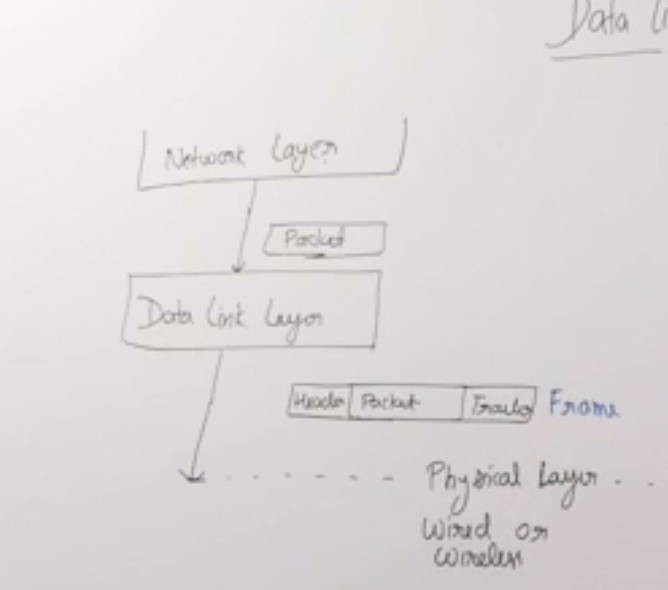 Data
Network Layer
Packet
Data Link Layer
Header Packet Trailer Frame
Physical Layer
Wired or
Wireless